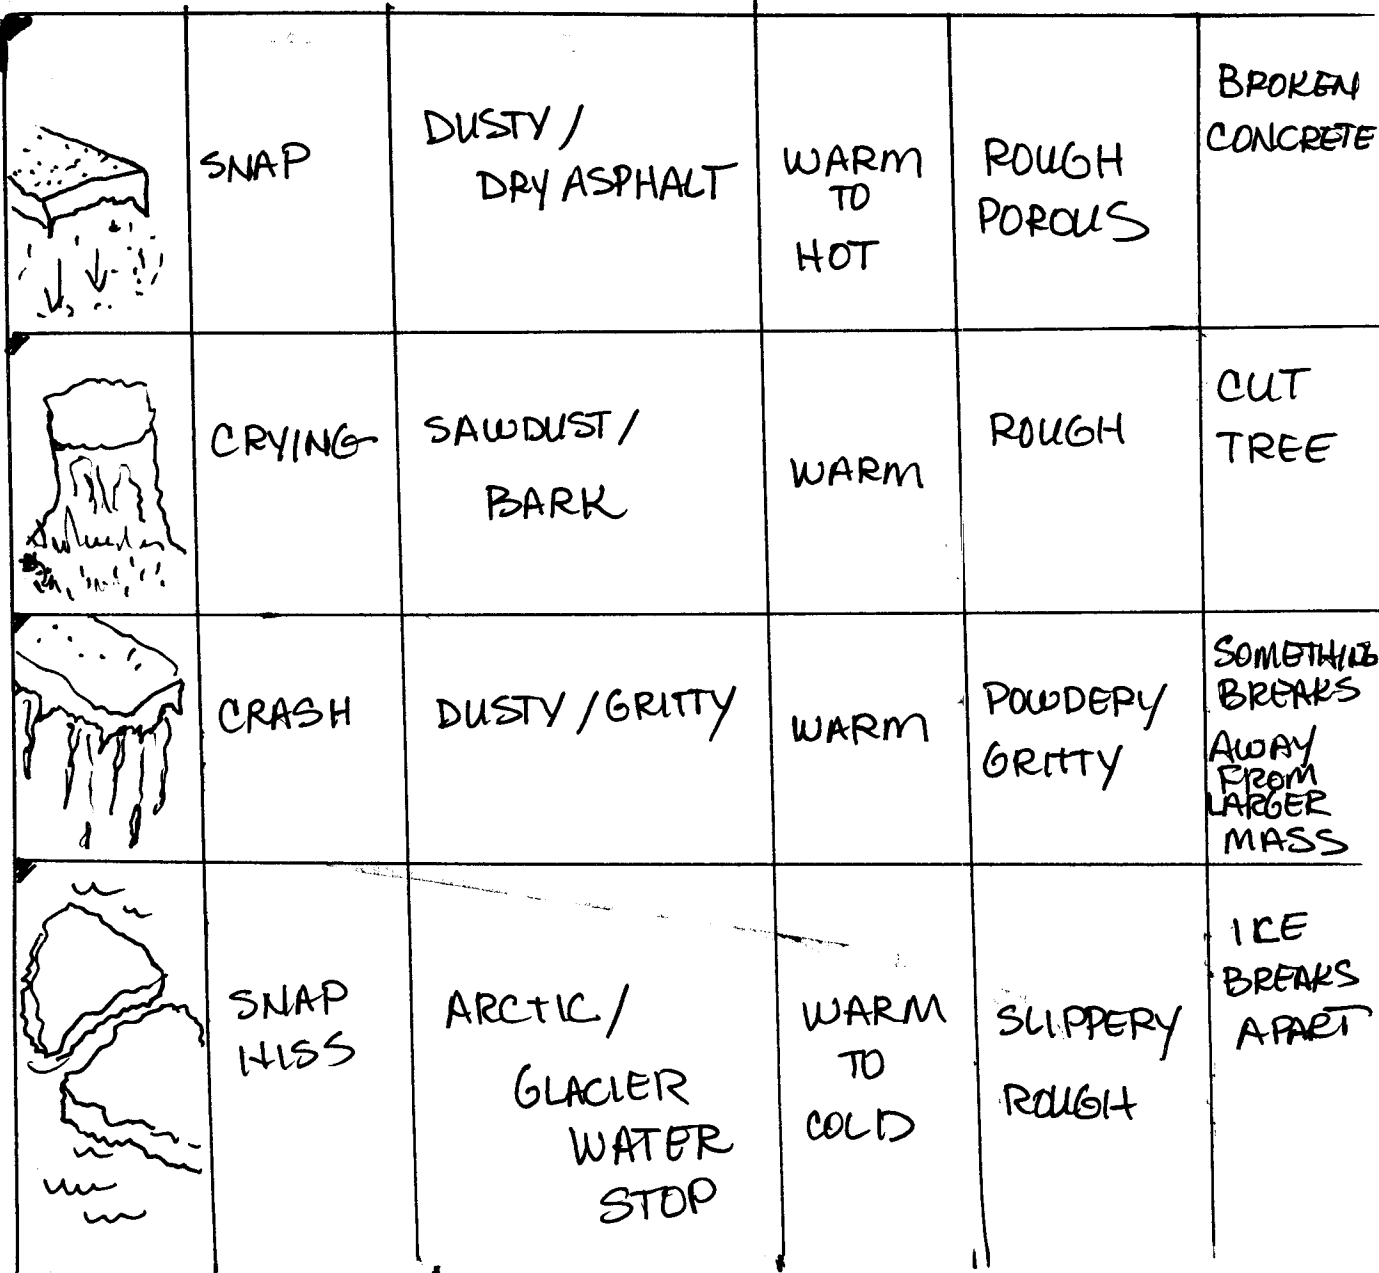 SNAP
DUSTY /
DRY ASPHALT
WARM
TO
HOT
ROUGH
POROUS
BROKEN
CONCRETE
CRYING
SAWDUST /
BARK
WARM
ROUGH
CUT
TREE
CRASH
DUSTY / GRITTY
WARM
POWDERY
GRITTY
SOMETHING
BREAKS
AWAY
FROM
LARGER
MASS
SNAP
HISS
ARCTIC /
GLACIER
WATER
STOP
WARM
TO
COLD
SLIPPERY
ROUGH
ICE
BREAKS
APART